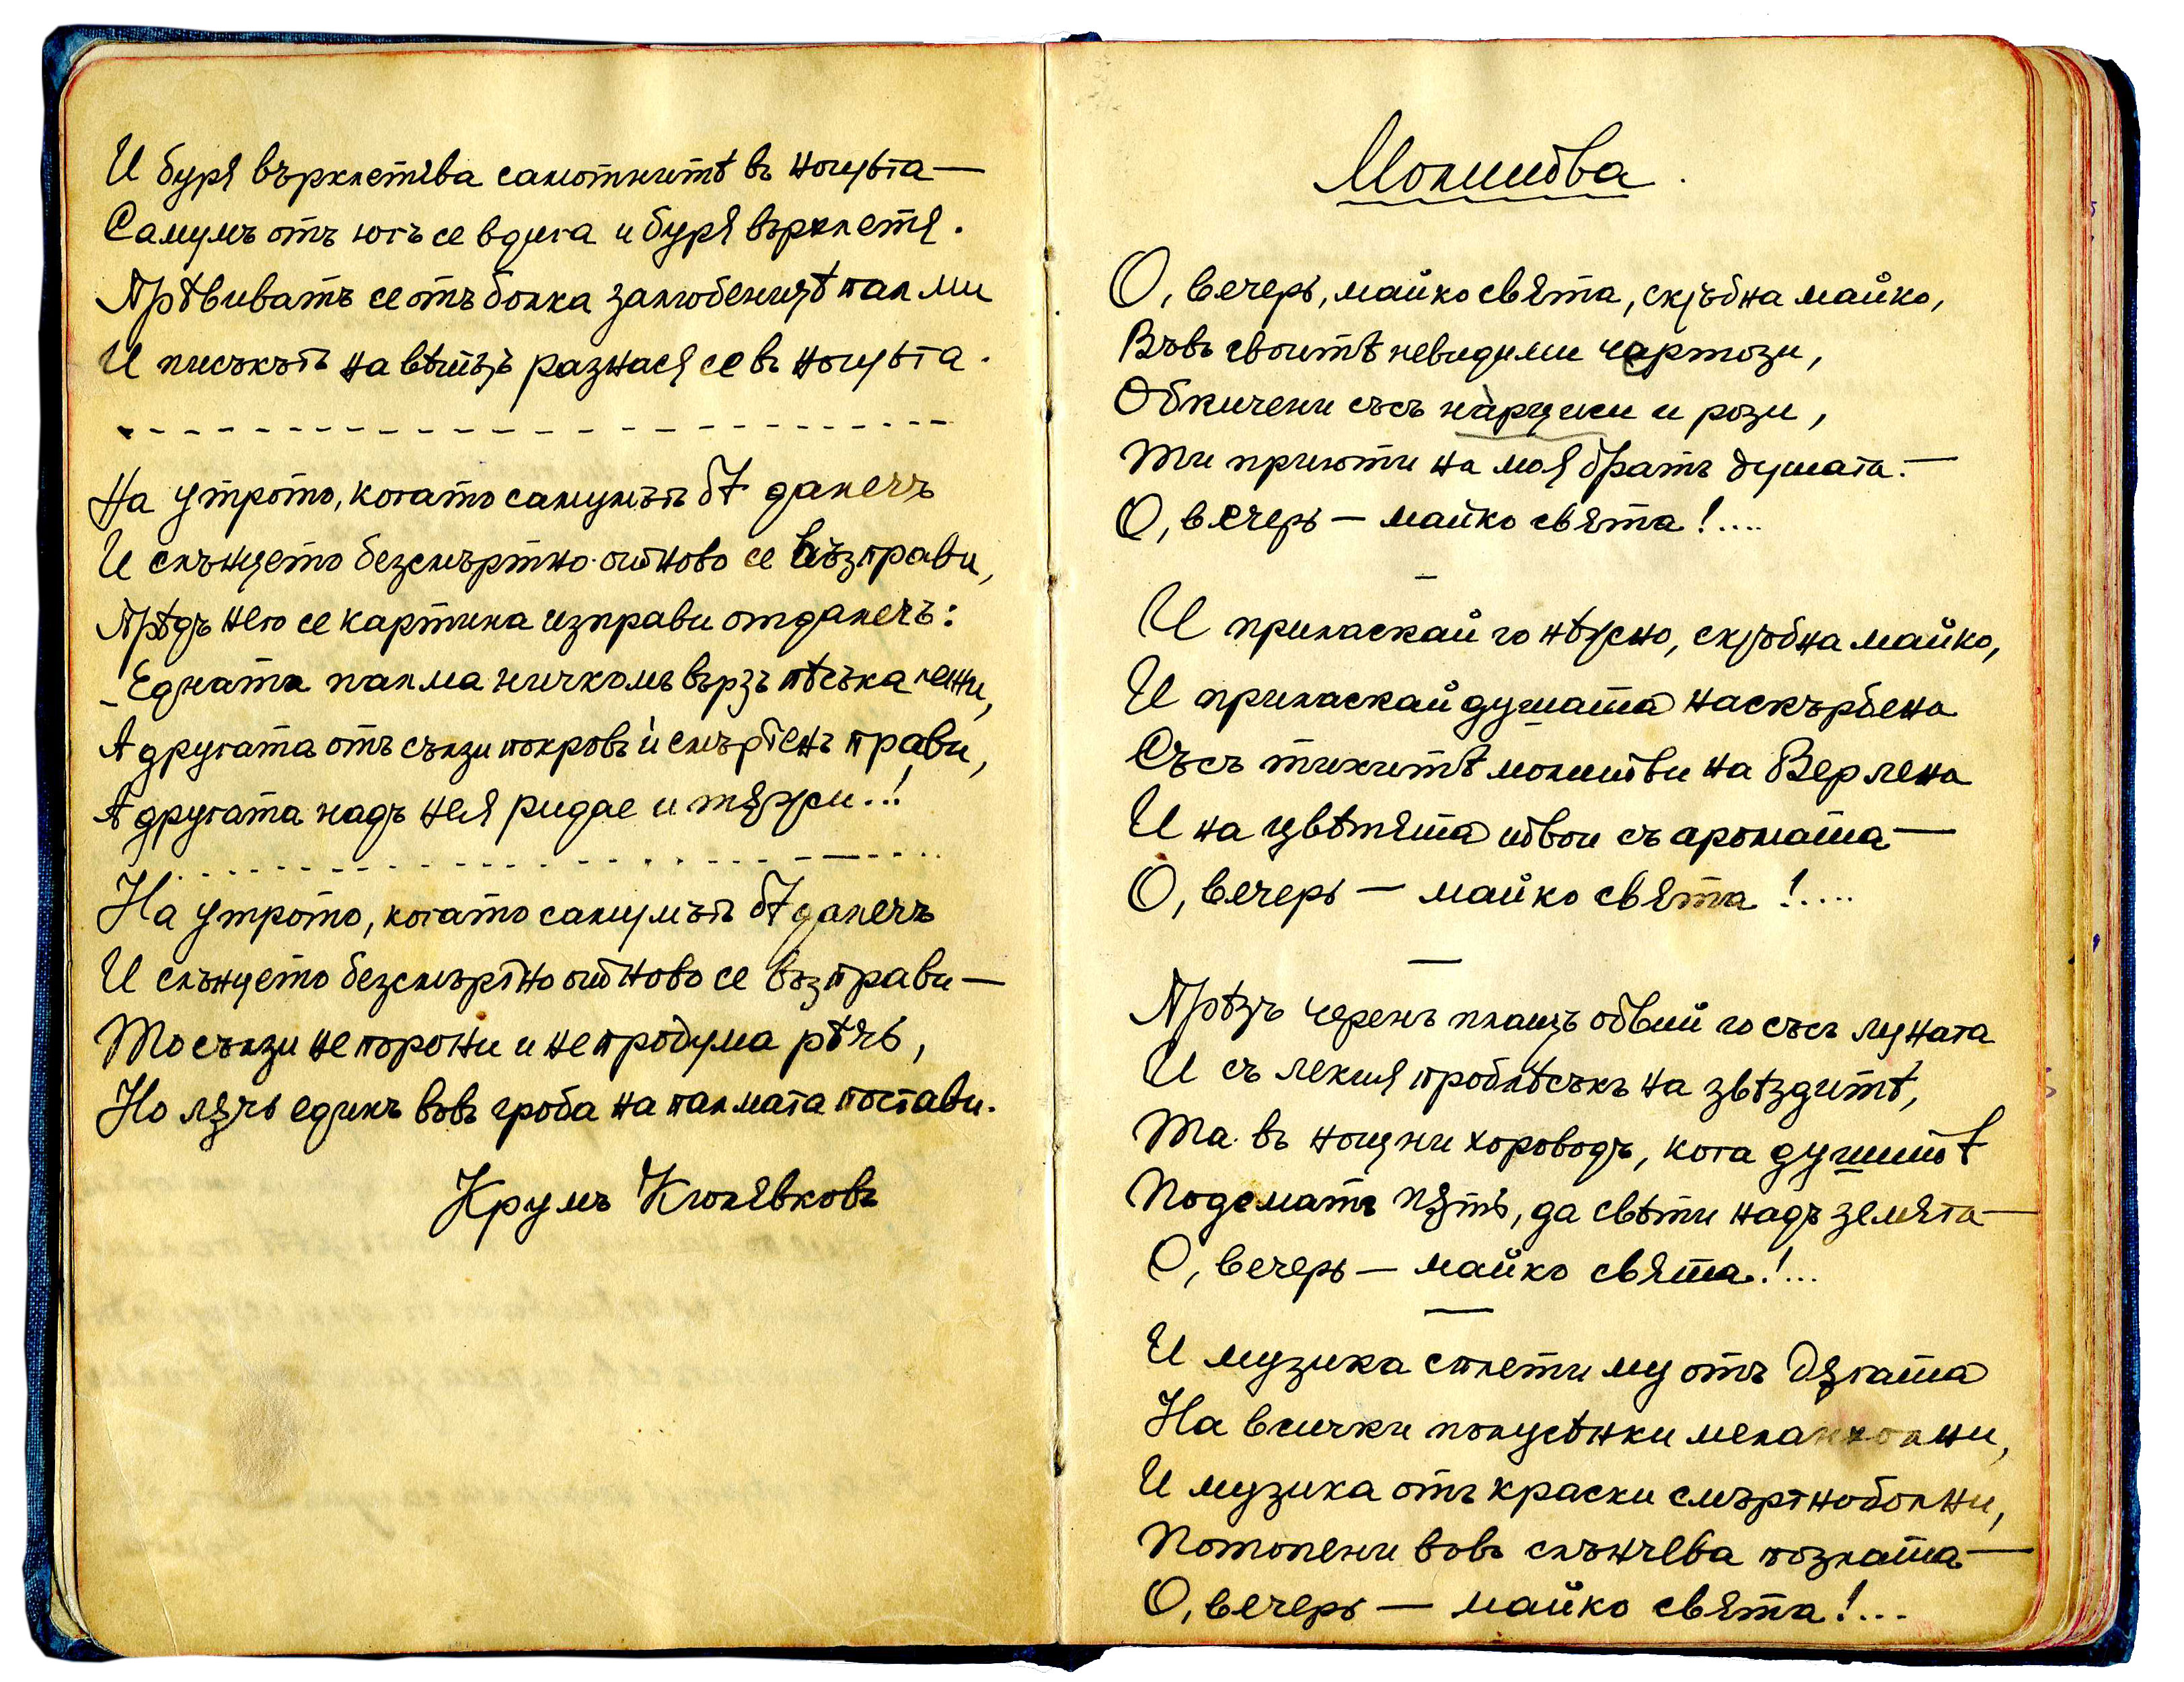 И буря върхлетява самотнитѣ въ нощьта—
Самумъ отъ югъ се вдига и буря върхлетя.
Прѣвиватъ се отъ болка залюбенитѣ палми
И писъкътъ на вѣтъръ разнася се въ нощьта.
На утрото, когато самумътъ бѣ далечъ
И слънцето безсмъртно отново се възправи,
Прѣдъ него се картина изправи отдалечъ:
– Едната палма ничкомъ вързъ пѣсъка лежи,
А другата отъ сълзи покровъ ѝ смъртенъ прави,
А другата надъ нея ридае и тѫжи..!
На утрото, когато самумътъ бѣ далечъ
И слънцето безсмъртно отново се възправи—
То сълзи не порони и не продума рѣчь,
Но лѫчъ единъ вовъ гроба на палмата постави.
Крумъ Кюлявковъ
Молитва.
О, вечерь, майко свята, скръбна майко,
Въвъ своитѣ невидими чертози,
Обкичени със нарциси и рози,
Ти приюти на моя братъ душата.—
О, вечерь — майко свята!....
И приласкай го нѣжно, скръбна майко,
И приласкай душата наскърбена
Със тихитѣ молитви на Верлена
И на цвѣтята твои съ аромата—
О, вечерь — майко свята!....
Прѣзъ черенъ плащъ обвий го със луната
И съ лекия проблѣсъкъ на звѣздитѣ,
Та въ нощни хороводъ, кога душитѣ
Подематъ пѫть, да свѣти надъ земята—
О, вечерь — майко свята!...
И музика сплети му отъ дѫгата
На всички полусѣнки меланхолни,
И музика отъ краски смъртноболни,
Потопени вовъ слънчева позлата—
О, вечерь — майко свята!...